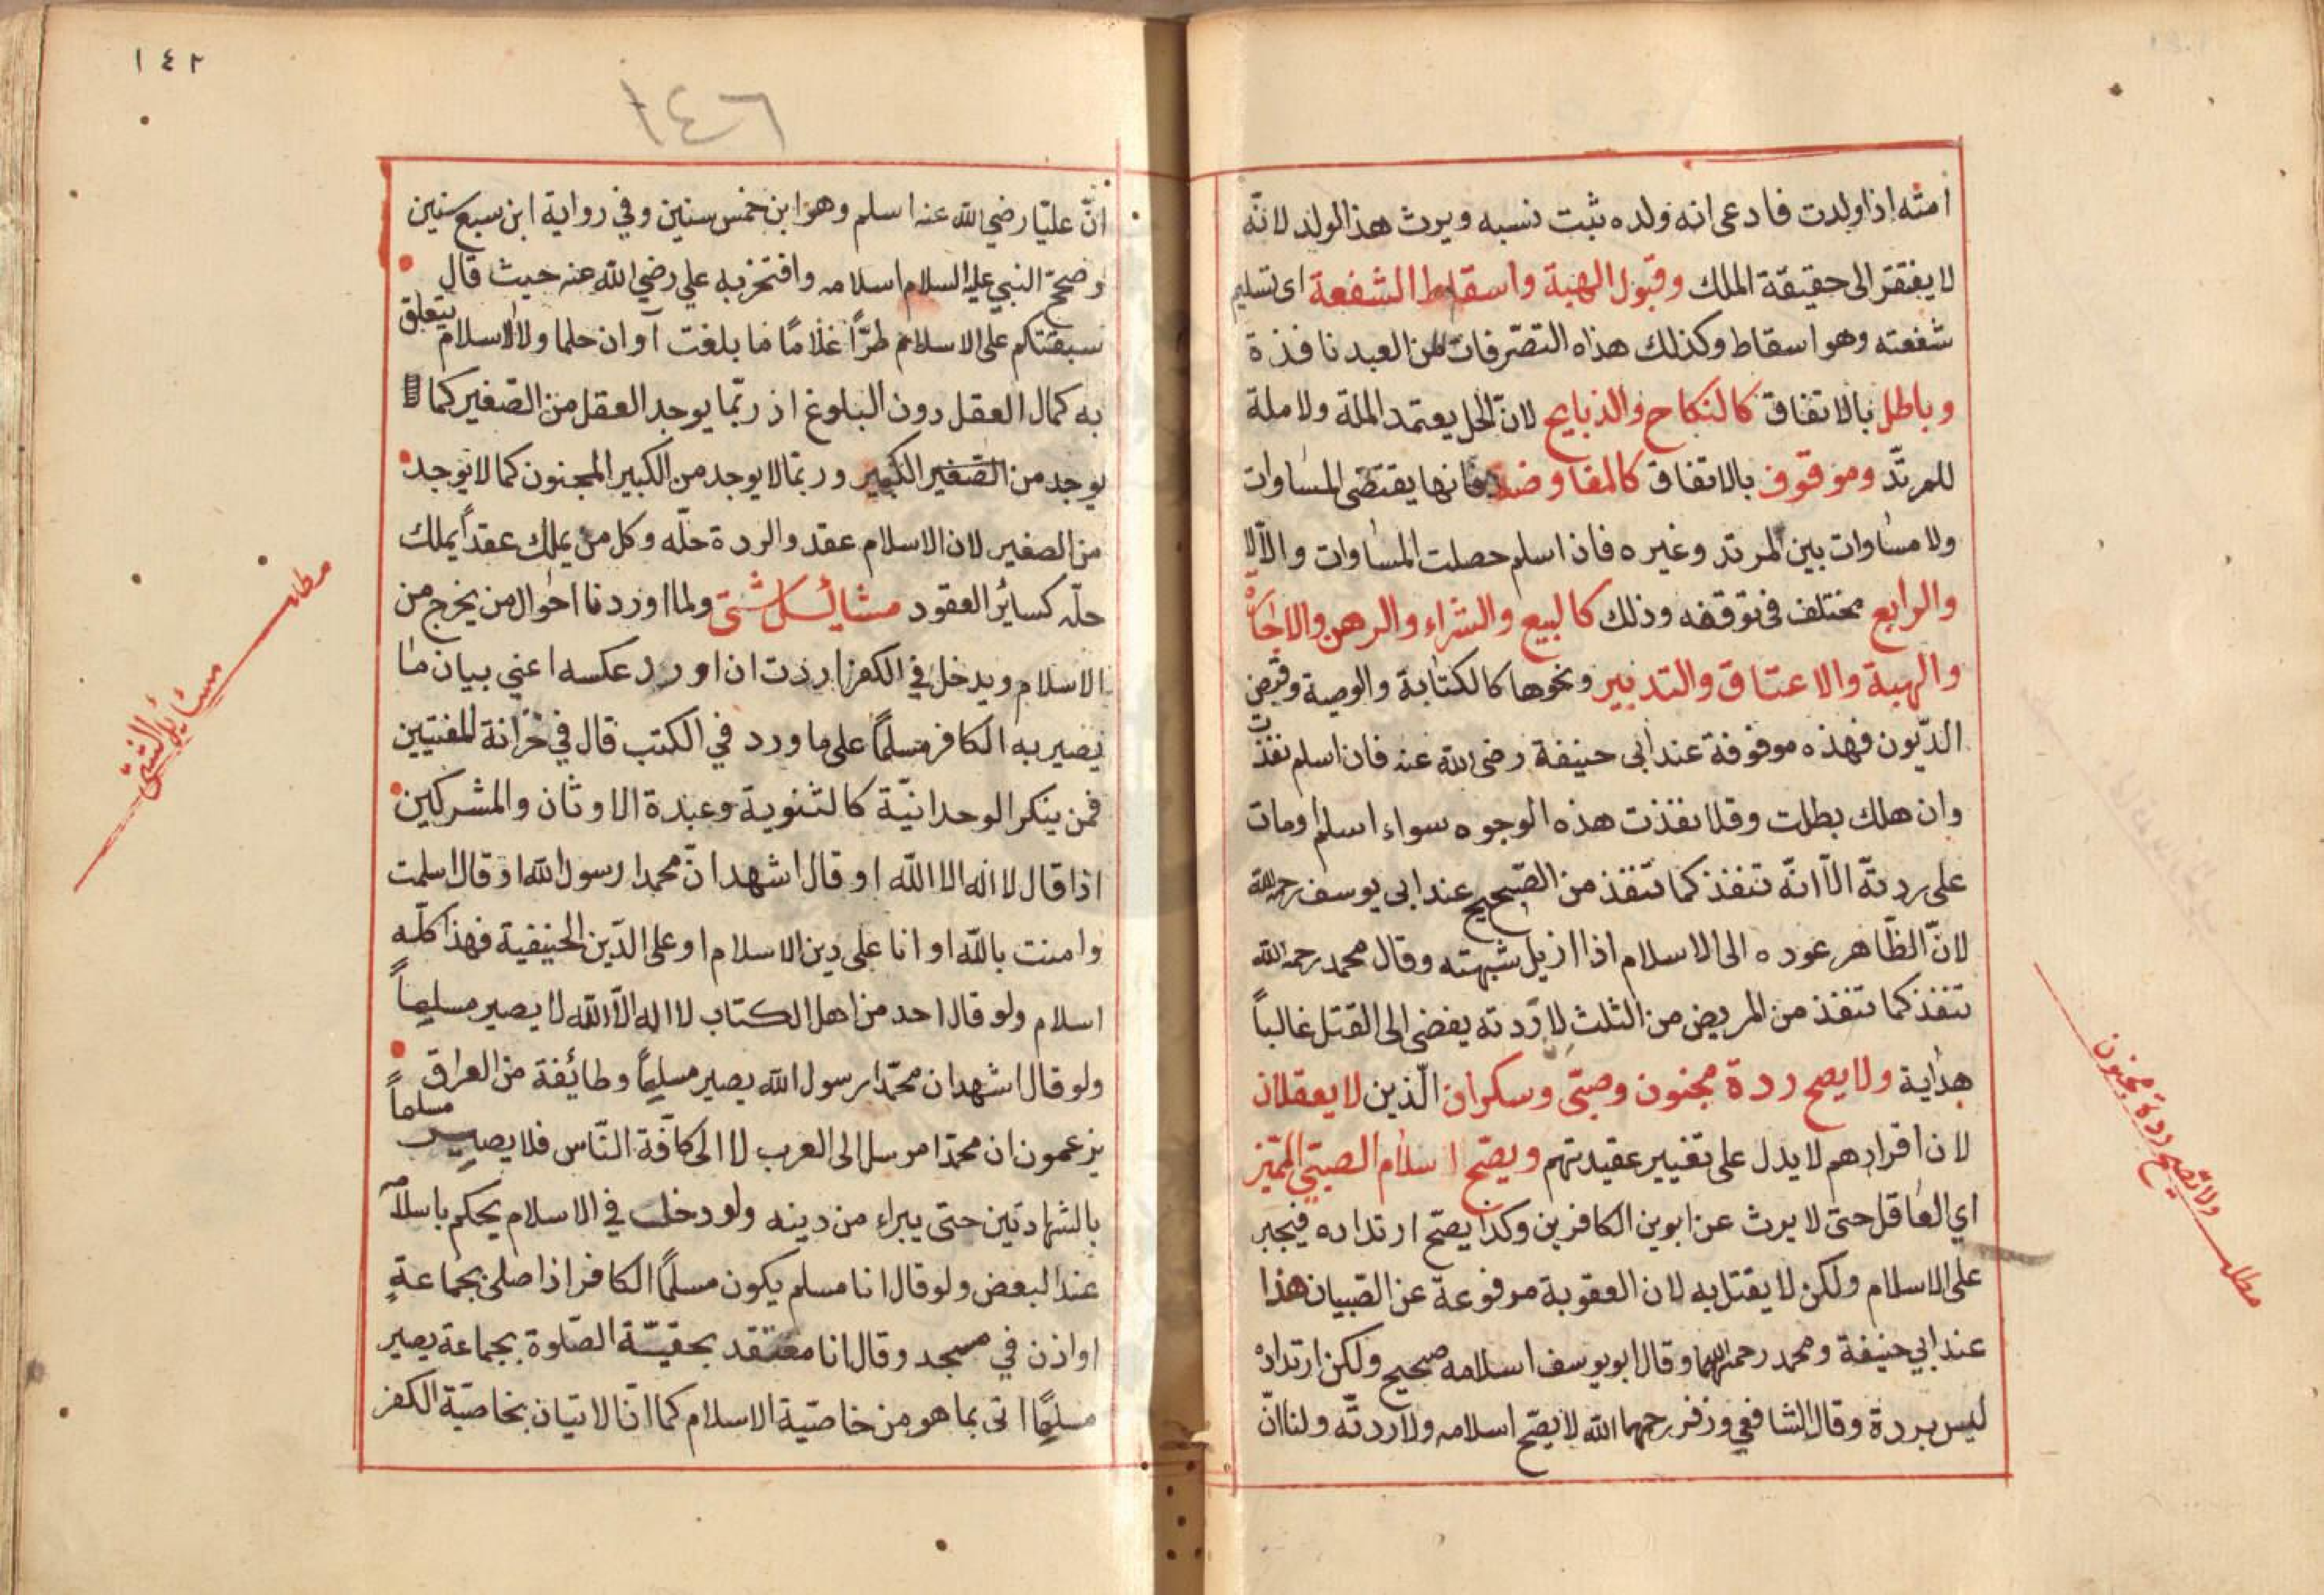 امته اذا ولدت فادعى انه ولده ثبت نسبه ويرث هذا الولد لانّه
لا يفتقر الى حقيقة الملك وقبول الهبة واسقاط الشفعة اى تسليم
شفعته وهو اسقاط وكذلك هذه التصّرفات من العبد نافذة
وباطل بالاتفاق كالنكاح والذبايح لانّ الحل يعتمد الملة ولا ملة
للمرتدّ وموقوف بالاتفاق كالمفاوضة فانها يقتضى المساوات
ولا مساوات بين المرتد وغيره فان اسلم حصلت المساوات والّا لا
والرابع مختلف فى توقفه وذلك كالبيع والشراء والرهن والاجارة
والهبة والاعتاق والتدبير ونحوها كالكتابة والوصية وقبض
الدّيون فهذه موقوفة عند ابى حنيفة رضى الله عنه فان اسلم نفذت
وان هلك بطلت وقلا نفذت هذه الوجوه سواء اسلم او مات
على ردته الّا انّه تنفذ كما تنفذ من الصّحيح عند ابى يوسف رحمه الله
لانّ الظّاهر عوده الى الاسلام اذا ازيل شبهته وقال محمد رحمه الله
تنفذ كما تنفذ من المريض من الثلث لا ردته يفضى الى القتل غالباً
هداية ولا يصح ردة مجنون وصبّى وسكران الّذين لا يعقلان
لان اقرارهم لا يدل على تغيير عقيدتهم ويصّح اسلام الصبّي المّميز
اي العاقل حتى لا يرث عن ابوين الكافرين وكذا يصّح ارتداده فيجبر
على الاسلام ولكن لا يقتل به لان العقوبة مرفوعة عن الصّبيان هذا
عند ابي حنيفة ومحمد رحمهما الله وقال ابو يوسف اسلامه صحيح ولكن ارتداده
ليس بردة وقال الشافعي وزفر رحمهما الله لا يصّح اسلامه ولا ردتّه ولنا انّ
مطلب ولا يصّح ردة مجنون
١٤٢
١٤٦
انّ عليّا رضي الله عنه اسلم وهو ابن خمس سنين وفي رواية ابن سبع سنين
وصحح النبي عليه السلام اسلامه وافتخر به علي رضي الله عنه حيث قال
سبقتكم على الاسلام طرًّا غلامًا ما بلغت آوان حلما ولا الاسلام يتعلق
به كمال العقل دون البلوغ اذ ربّما يوجد العقل من الصّغير كما
يوجد من الصّغير الكبير وربّما لا يوجد من الكبير المجنون كما لا يوجد
من الصغير لان الاسلام عقد والردة حلّه وكل من يملك عقداً يملك
حلّه كسائر العقود مسائل شتى ولما اوردنا احوال من يخرج من
الاسلام ويدخل في الكفر اردت ان اورد عكسه اعني بيان ما
يصير به الكافر مسلمًا على ما ورد في الكتب قال في خزانة المفتيين
فمن ينكر الوحدانيّة كالثنوية وعبدة الاوثان والمشركين
اذا قال لا اله الا الله او قال اشهد انّ محمدا رسول الله او قال اسلمت
وامنت بالله او انا على دين الاسلام او على الدّين الحنيفية فهذا كلّه
اسلام ولو قال احد من اهل الكتاب لا اله الّا الله لا يصير مسلماً
ولو قال اشهد ان محمّدا رسول الله يصير مسلمًا وطائفة من العراق
يزعمون ان محمّدا مرسل الى العرب لا الى كافّة النّاس فلا يصير مسلماً
بالشهادتين حتى يبراء من دينه ولو دخل في الاسلام يحكم باسلامه
عند البعض ولو قال انا مسلم يكون مسلمًا الكافر اذا صلى بجماعةٍ
او اذن في مسجد وقال انا معتقد بحقيّة الصّلوة بجماعة يصير
مسلمًا اتى بما هو من خاصيّة الاسلام كما انّ الاتيان بخاصيّة الكفر
مطلب مسائل الشتى